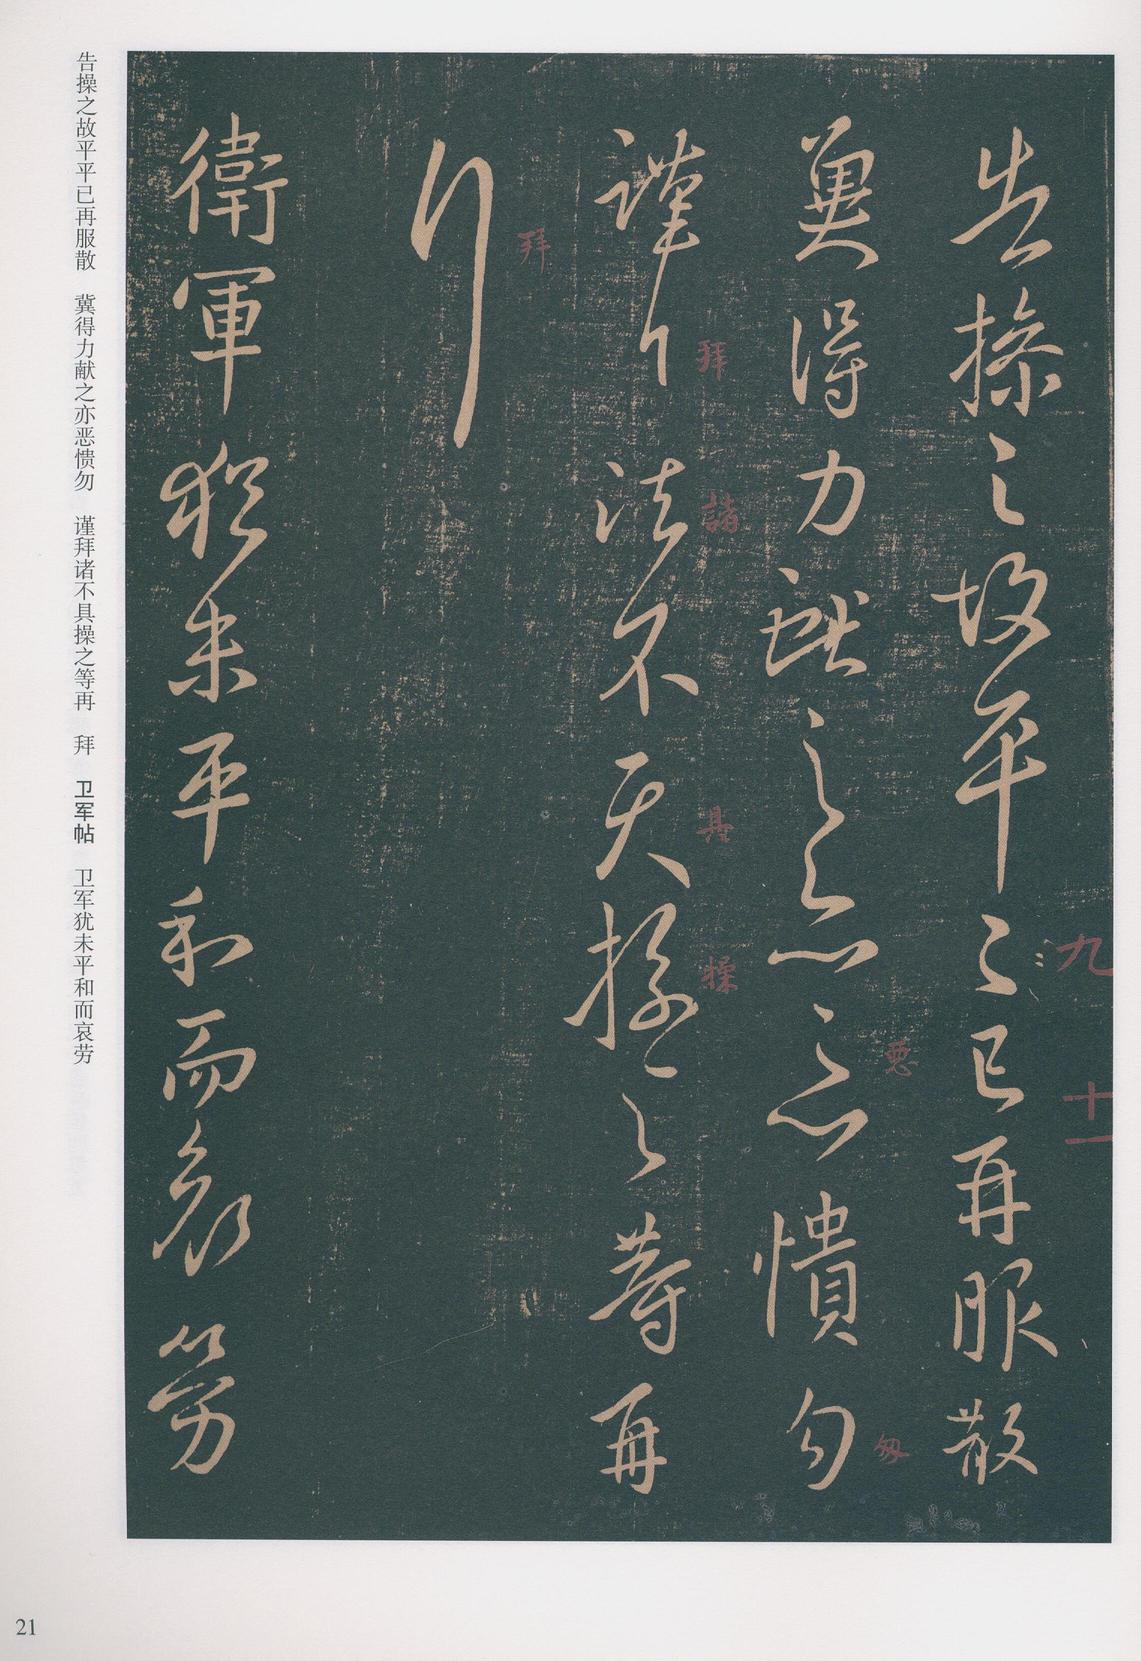 告操之故平〻已再服散
冀得力獻之亦惡憒勿
謹拜諸不具操之等再
拜
衛軍猶未平和而哀勞
九
十一
惡
匆
拜
諸
具
操
拜
告操之故平平已再服散　冀得力献之亦恶愦勿　谨拜诸不具操之等再　拜　卫军帖　卫军犹未平和而哀劳
21